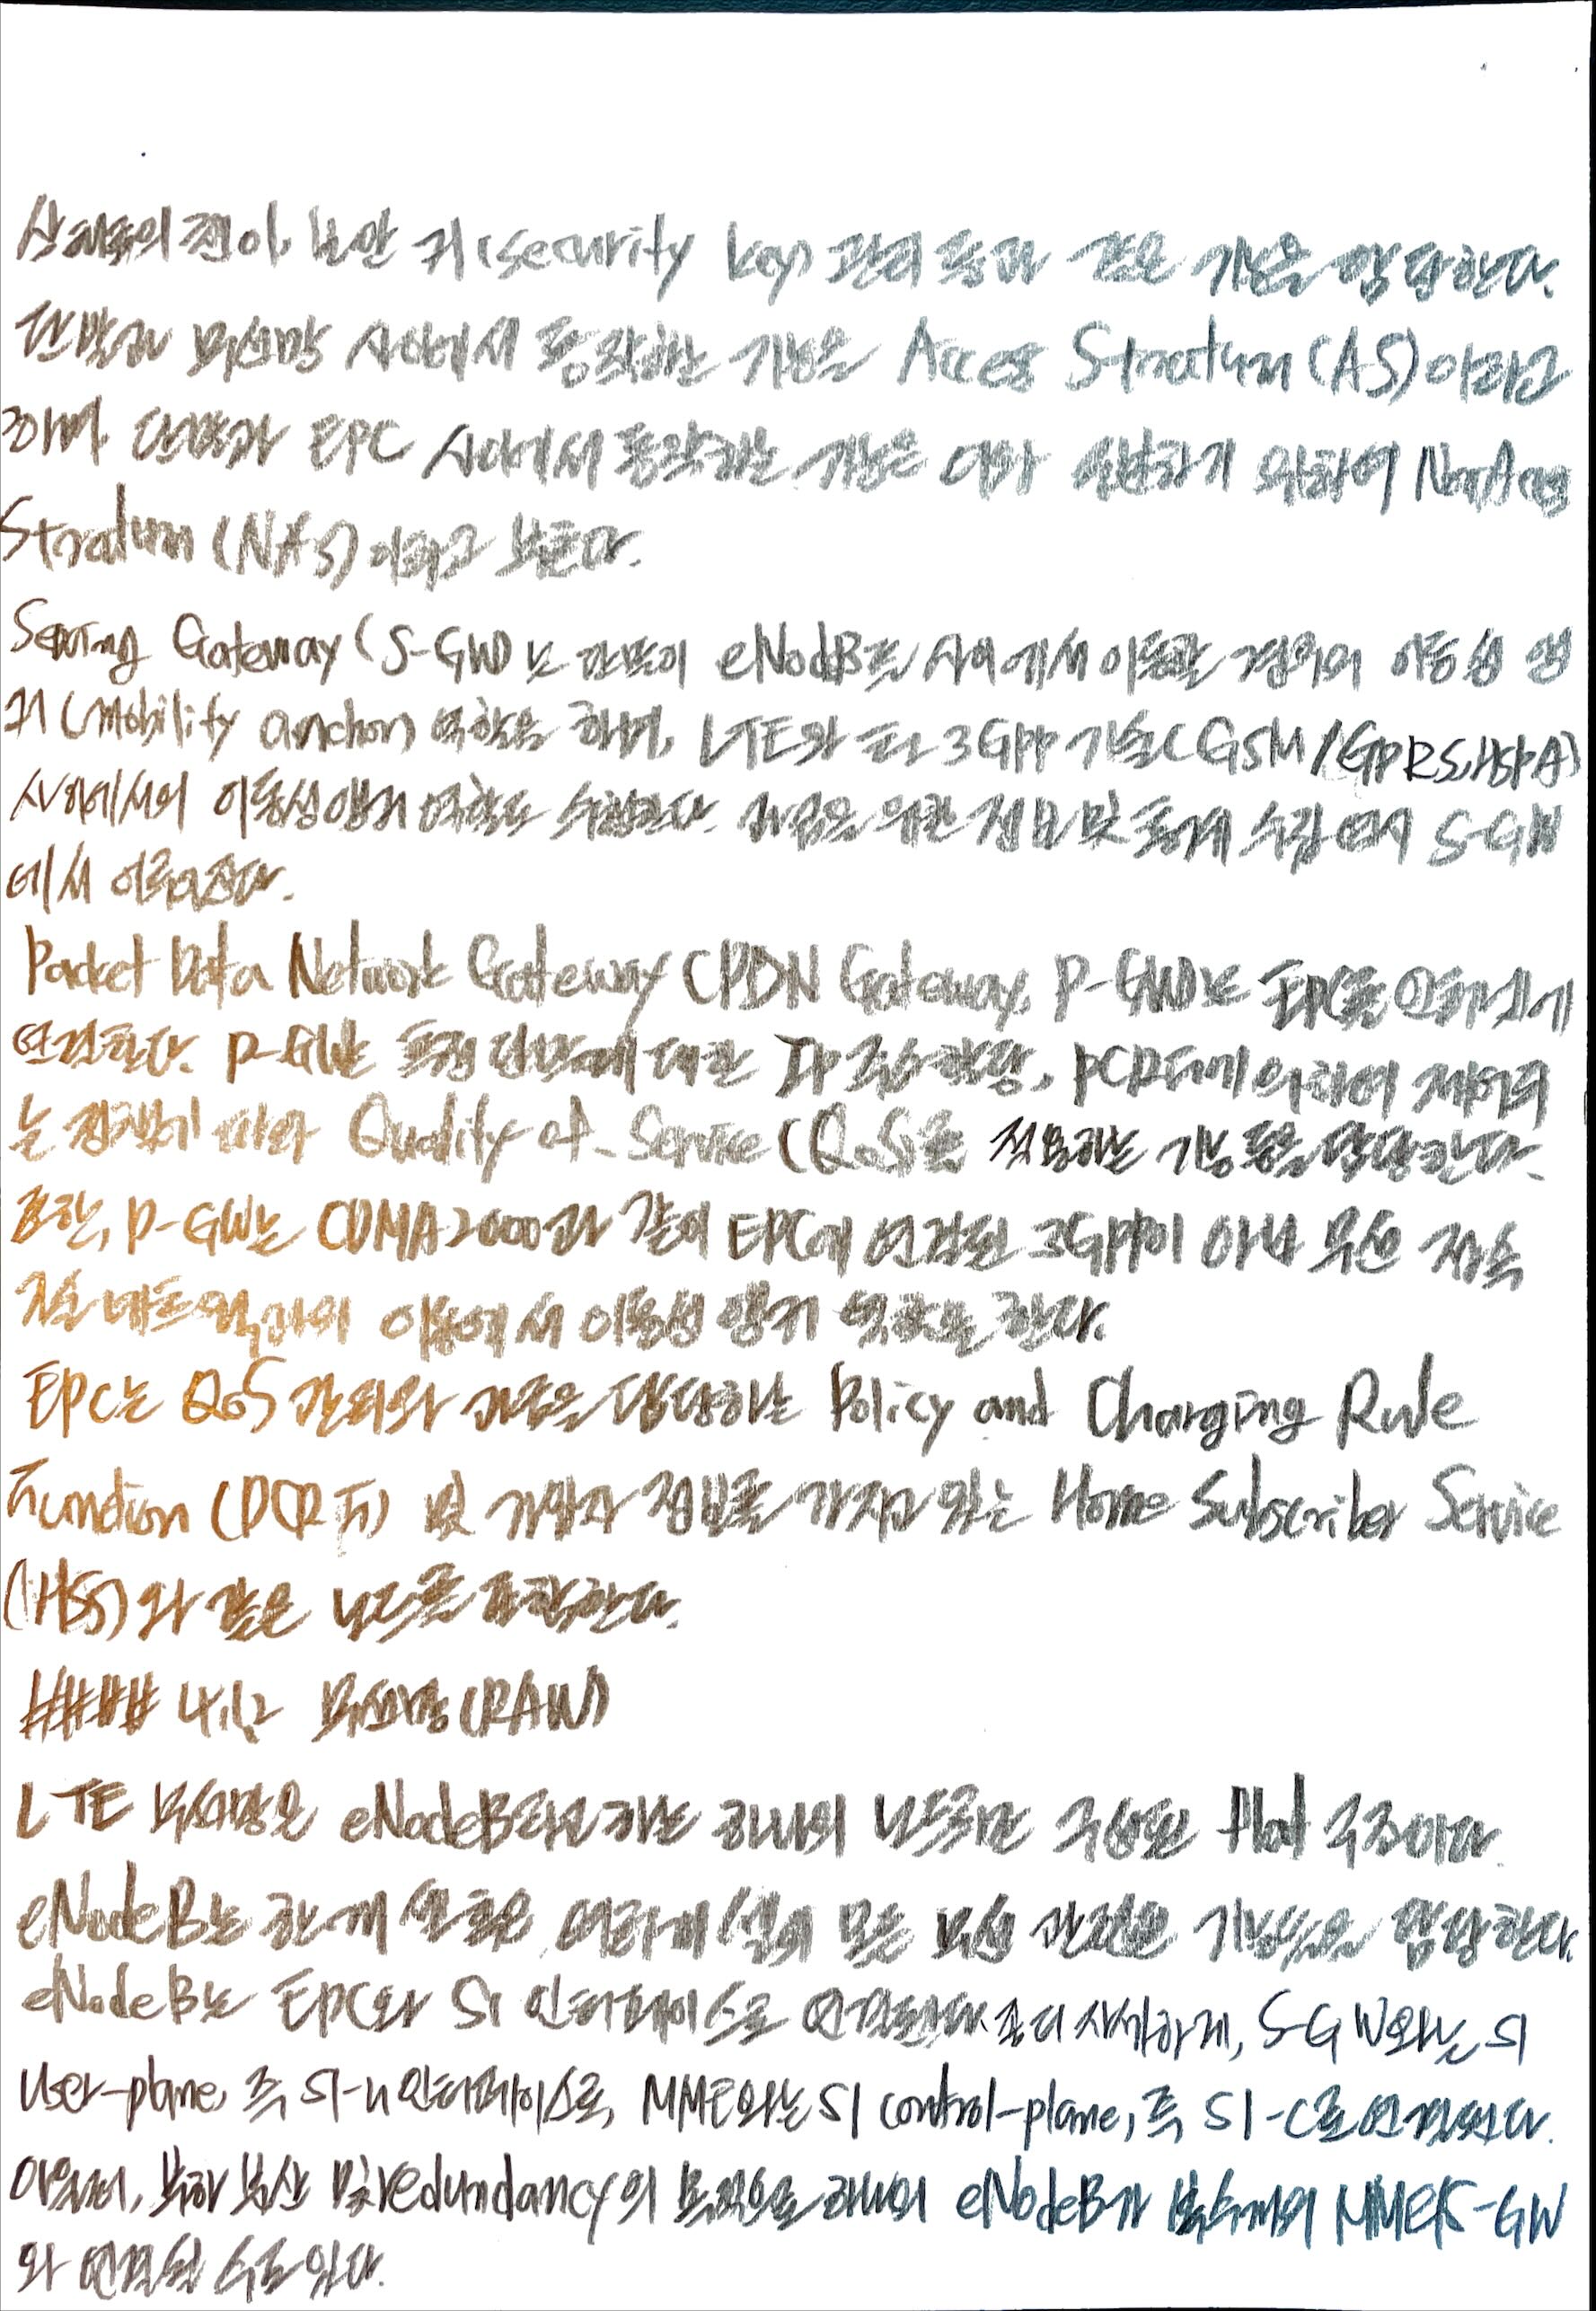 상태로의 전이, 보안 키(security key) 관리 등과 같은 기능을 담당한다.
단말과 무선망 사이에서 동작하는 기능을 Access Stratum(AS)이라고
하며, 단말과 EPC 사이에서 동작하는 기능은 이와 구분하기 위하여 Non-Access
Stratum(NAS)이라고 부른다.
Serving Gateway(S-GW)는 단말이 eNodeB들 사이에서 이동할 경우의 이동성 앵
커(mobility anchor) 역할을 하며, LTE와 다른 3GPP 기술(GSM/GPRS, HSPA)
사이에서의 이동성 앵커 역할도 수행한다. 과금을 위한 정보 및 통계 수집 역시 S-GW
에서 이루어진다.
Packet Data Network Gateway(PDN Gateway, P-GW)는 EPC를 인터넷에
연결한다. P-GW는 특정 단말에 대한 IP 주소 할당, PCRF에 의하여 제어되
는 정책에 따라 Quality-of-Service(QoS)를 적용하는 기능 등을 담당한다.
또한, P-GW는 CDMA2000과 같이 EPC에 연결된 3GPP이 아닌 무선 접속
기술 네트워크와의 이동에서 이동성 앵커 역할을 한다.
EPC는 QoS 관리와 과금을 담당하는 Policy and Charging Rule
Function(PCRF) 및 가입자 정보를 가지고 있는 Home Subscriber Service
(HSS)와 같은 노드를 포함한다.
#### 4.1.2 무선망(RAN)
LTE 무선망은 eNodeB라고 하는 하나의 노드로만 구성된 flat 구조이다.
eNodeB는 한 개 셀 혹은 여러 개 셀의 모든 무선 관련된 기능들을 담당한다.
eNodeB는 EPC와 S1 인터페이스로 연결된다. 좀 더 자세하게, S-GW와는 S1
user-plane, 즉 S1-u 인터페이스로, MME와는 S1 control-plane, 즉 S1-c로 연결된다.
아울러, 부하 분산 및 redundancy의 목적으로 하나의 eNodeB가 복수개의 MME/S-GW
와 연결될 수도 있다.